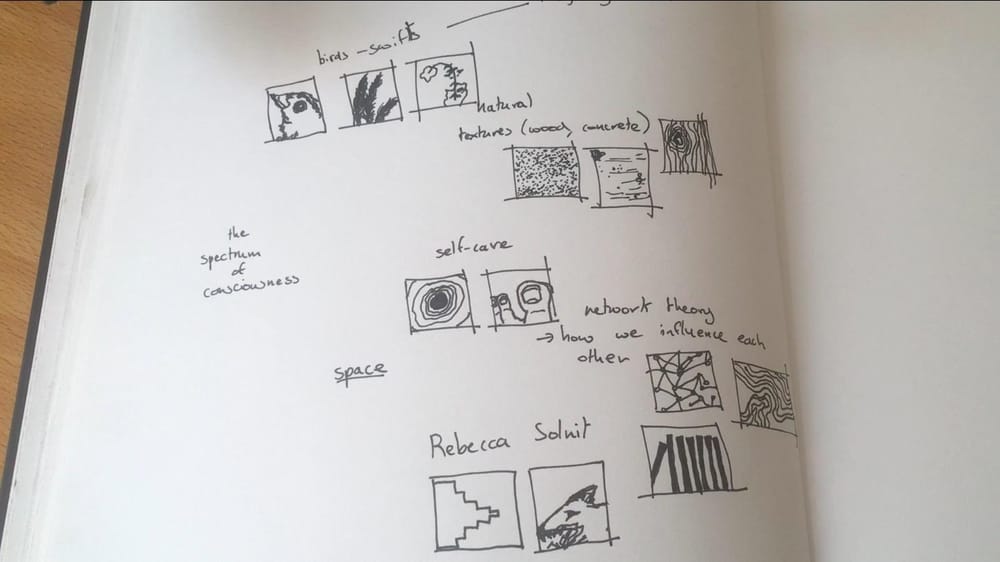 birds - swifts
natural
textures (wood, concrete)
the
spectrum
of
consciowness
self-care
network theory
→ how we influence each
other
space
Rebecca Solnit